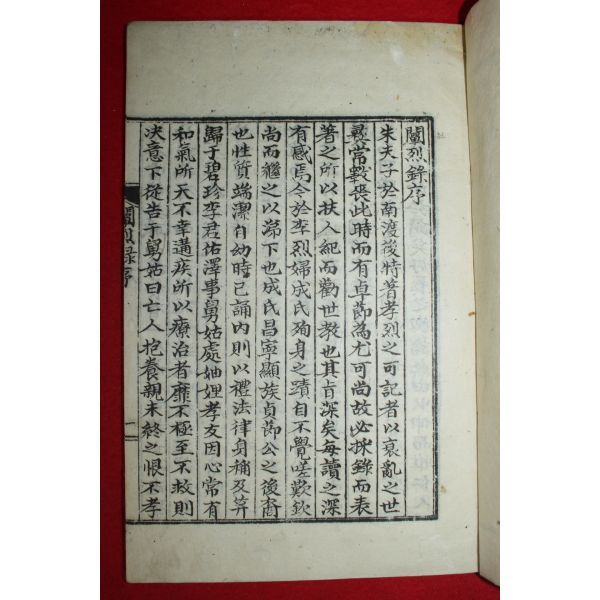 閫烈錄序
朱夫子於南渡後特著孝烈之可記者以衰亂之世
彛常斁喪此時而有卓節為尤可尚故必採錄而表
著之所以扶人紀而勸世教也其旨深矣每讀之深
有感焉今於李烈婦成氏殉身之蹟自不覺嗟歎欽
尚而繼之以涕下也成氏昌寧顯族貞節公之後裔
也性質端潔自幼時已誦內則以禮法律身稱及笄
歸于碧珍李君佑澤事舅姑處妯娌孝友因心常有
和氣所天不幸遘疾所以療治者靡不極至不救則
决意下從告于舅姑曰亡人抱養親未終之恨不孝
閫烈錄序
一